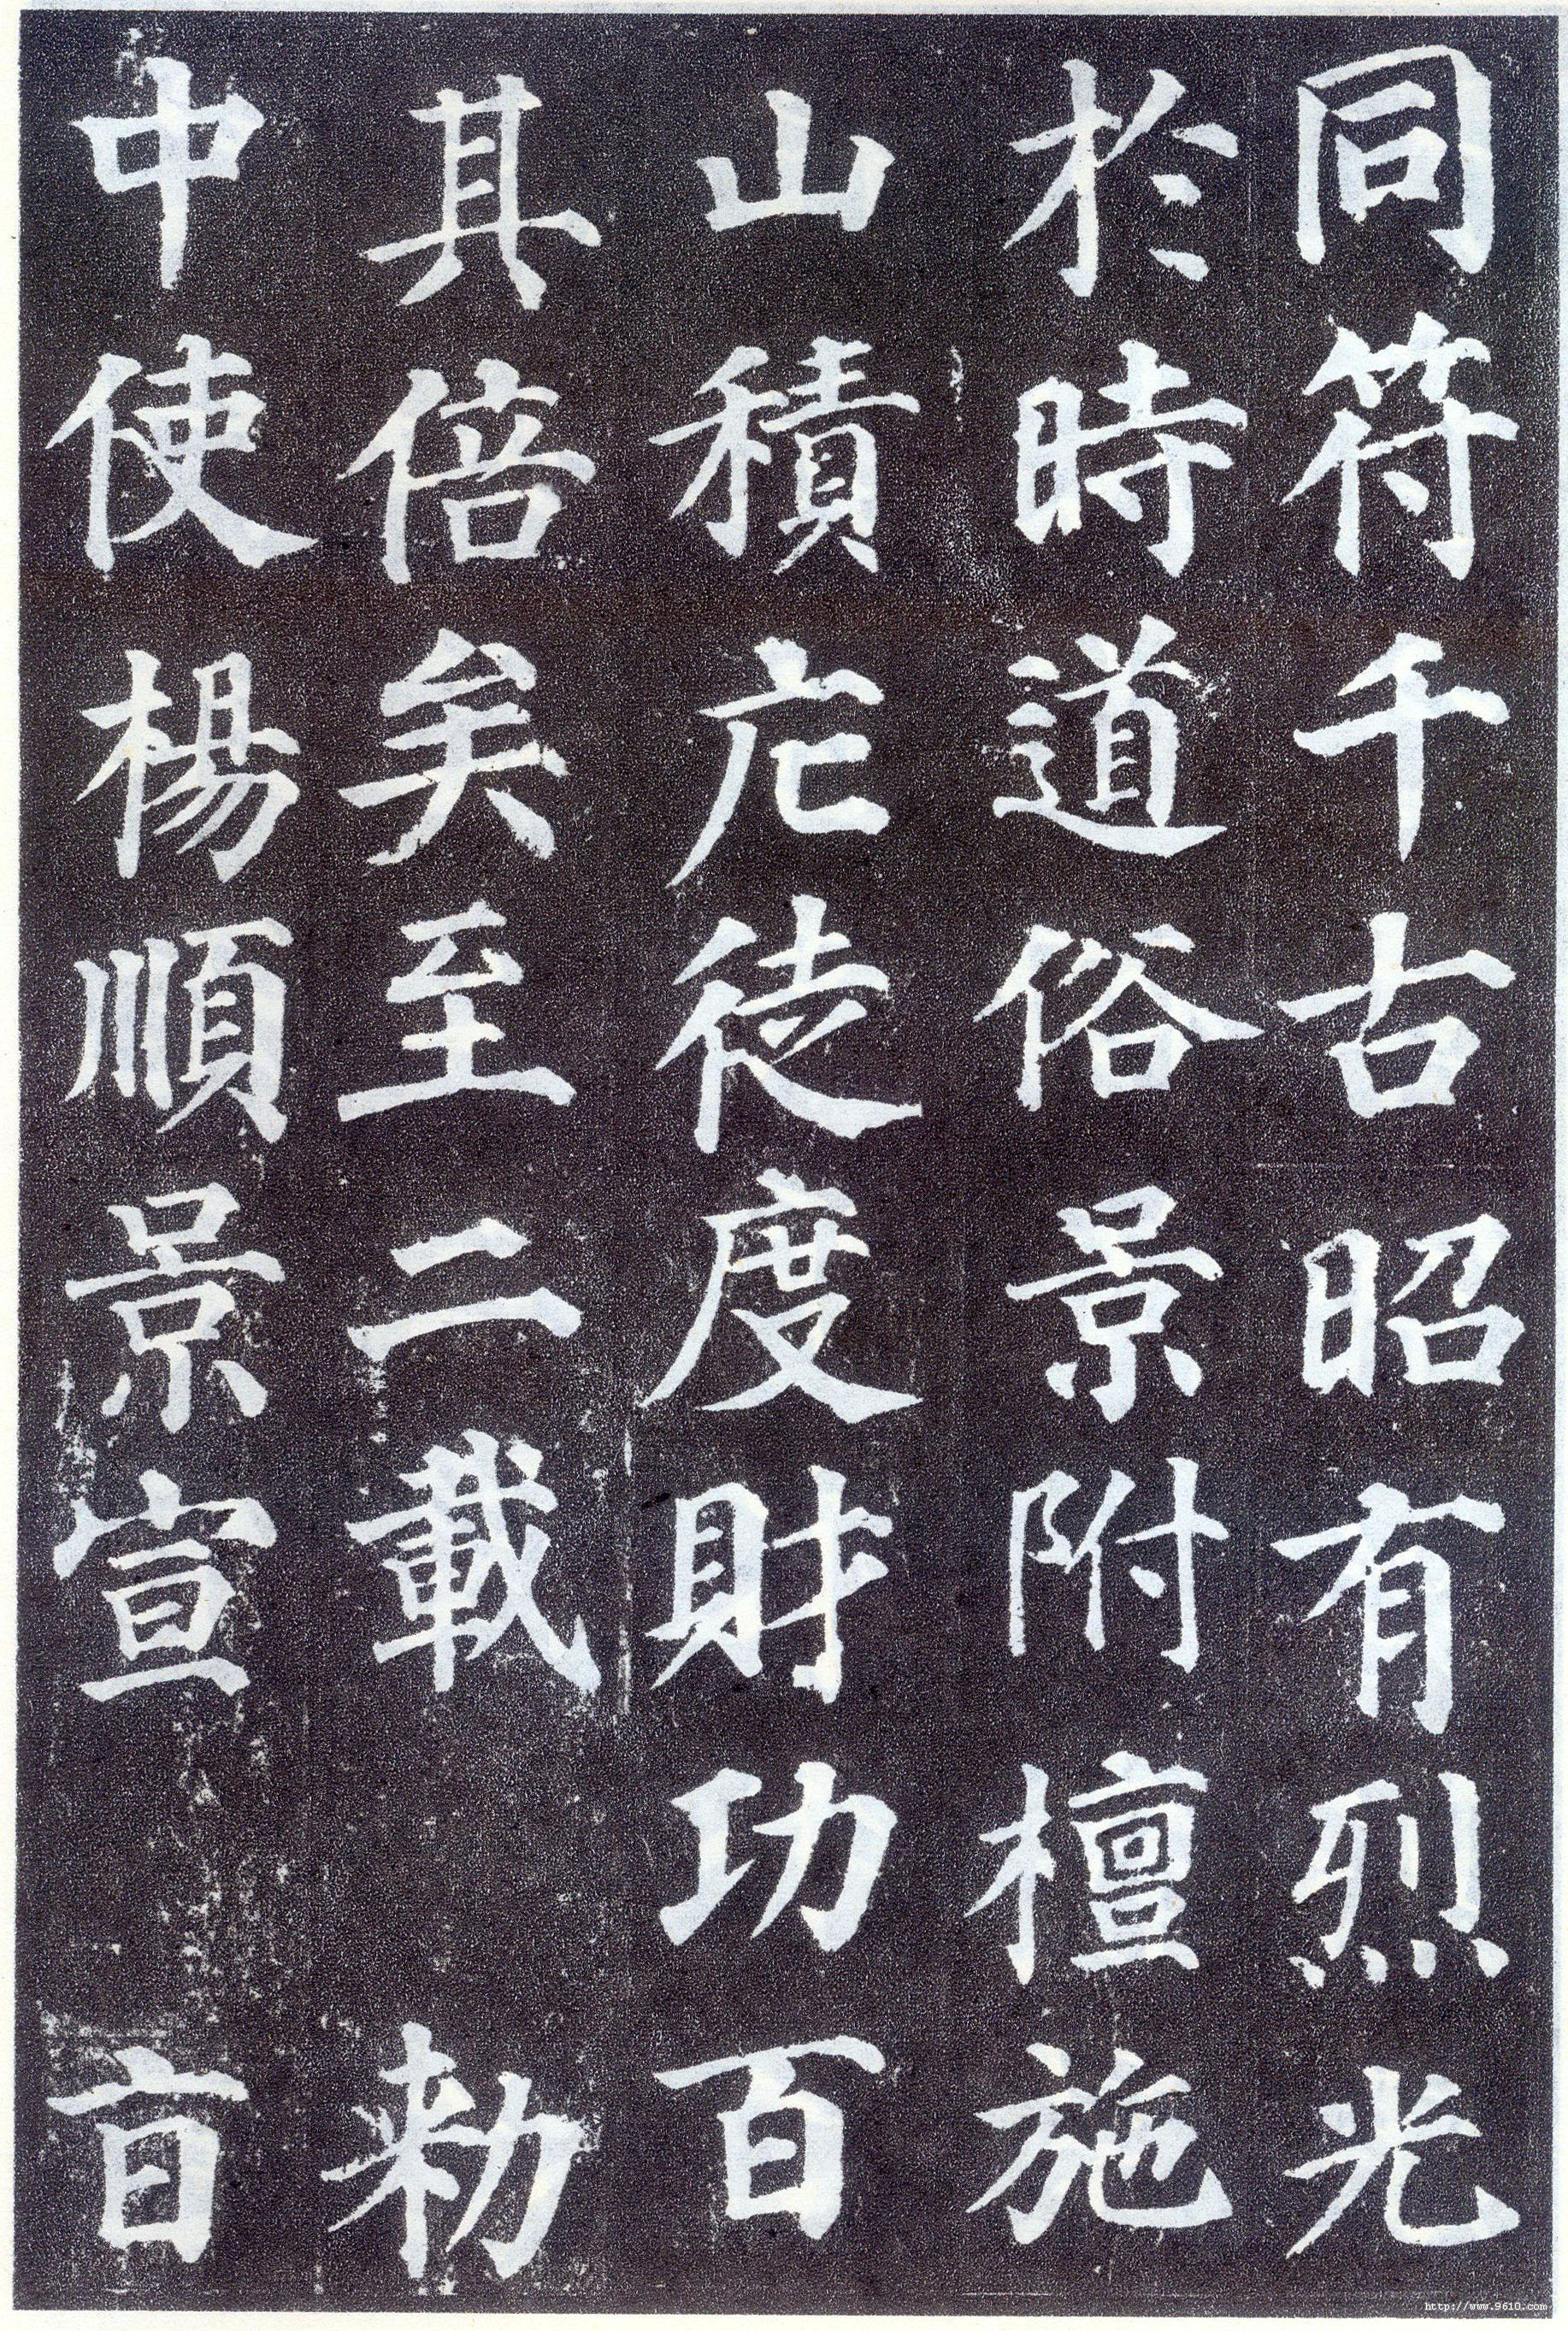 同符千古昭有烈光
於時道俗景附檀施
山積庀徒度財功百
其倍矣至二載 勑
中使楊順景宣 旨
http://www.9610.com